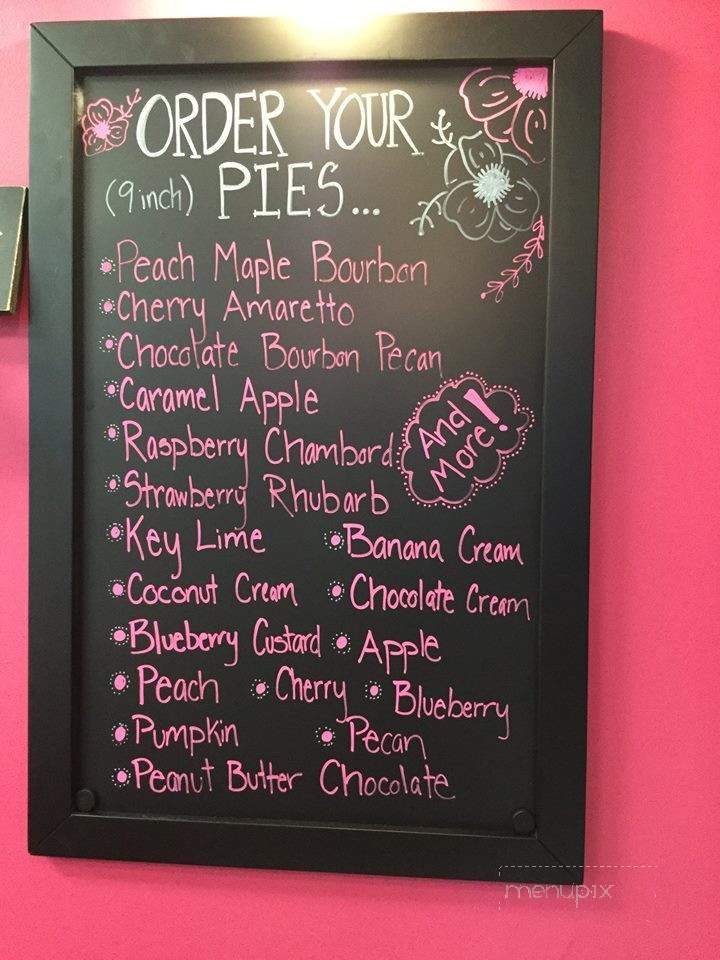 ORDER YOUR
(9 inch) PIES...
•Peach Maple Bourbon
•Cherry Amaretto
•Chocolate Bourbon Pecan
•Caramel Apple
•Raspberry Chambord
And More!
•Strawberry Rhubarb
•Key Lime •Banana Cream
•Coconut Cream •Chocolate Cream
•Blueberry Custard •Apple
•Peach •Cherry •Blueberry
•Pumpkin •Pecan
•Peanut Butter Chocolate
menupix